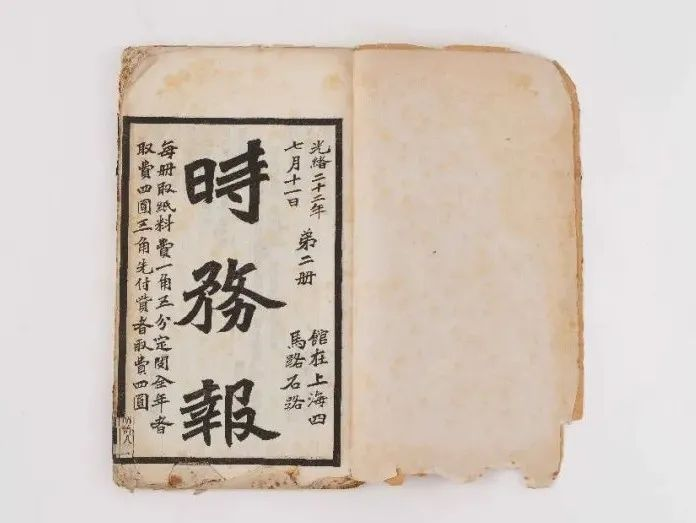 光緒二十二年
七月十一日
第二册
館在上海四
馬路石路
時務報
每册取紙料費一角五分定閱全年者
取費四圓三角先付費者取費四圓